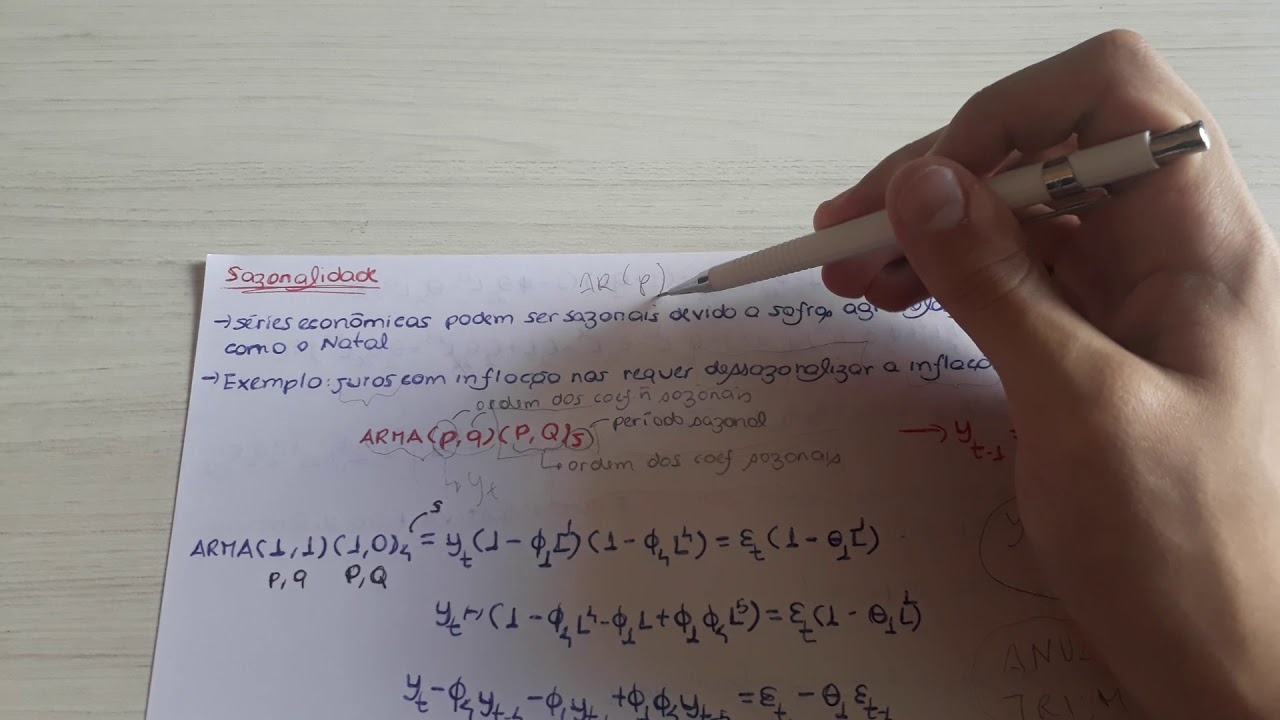 Sazonalidade AR(p)
→ séries econômicas podem ser sazonais devido a safra,
como o Natal
→ Exemplo: juros com inflação nas requer dessazonalizar a
ordem dos coef ñ sazonais
ARMA(p,q)(P,Q)s período sazonal → y_{t-1} =
ordem dos coef sazonais
y_t
s
ARMA(1,1)(1,0)₄ = Y_t(1 - φ₁L)(1 - φ₄L⁴) = ε_t(1 - θ₁L)
p,q P,Q
Y_t(1 - φ₄L⁴ - φ₁L + φ₁φ₄L⁵) = ε_t(1 - θ₁L)